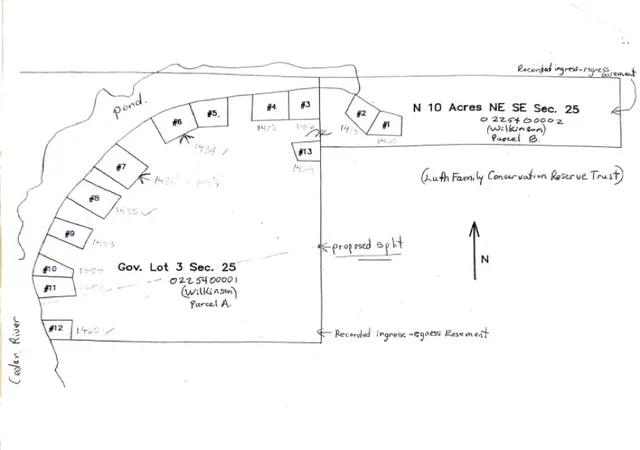 Recorded ingress-egress easement
pond.
#6
#5.
#4
#3
#2
#1
N 10 Acres NE SE Sec. 25
0225400002
(Wilkinson)
Parcel B.
1434
#13
#7
(Luth Family Conservation Reserve Trust)
#8
1435
#9
proposed split
N
#10
Gov. Lot 3 Sec. 25
0225400001
#11
(Wilkinson)
Parcel A
#12
1420
Recorded ingress-egress Easement
Cedar River